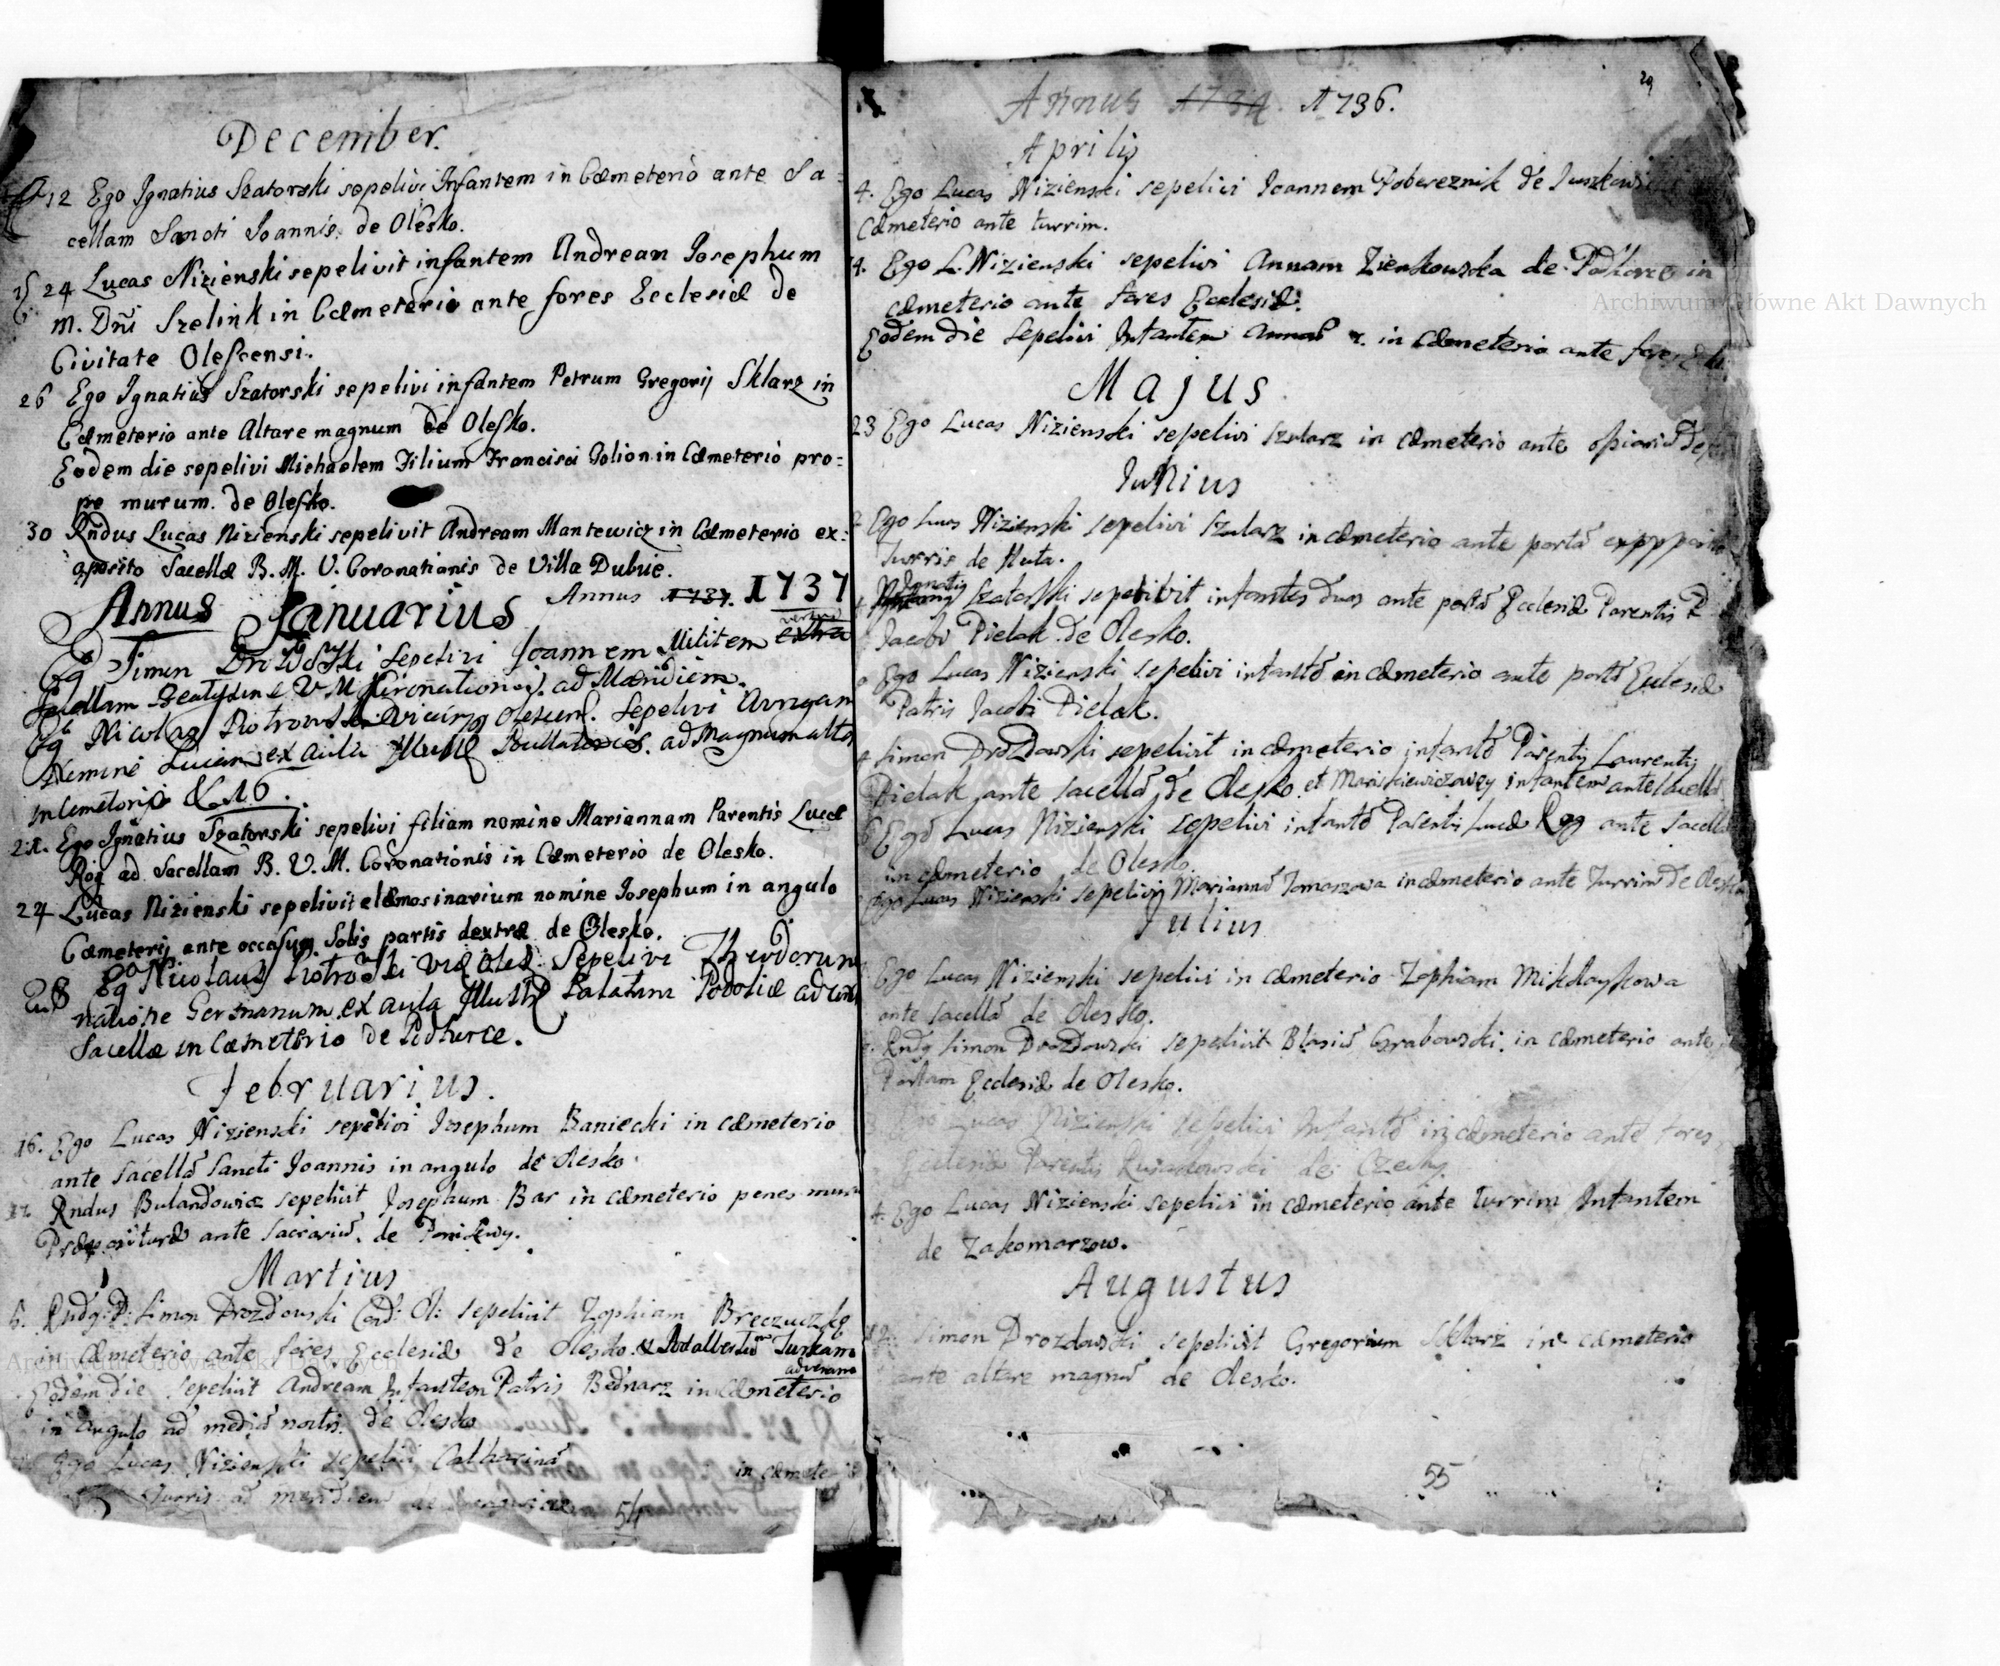 December.
12 Ego Ignatius Szatorski sepelivi Infantem in Cæmeterio ante Sa=
cellam Sancti Joannis. de Olesko.
24 Lucas Nizienski sepelivit infantem Andream Josephum
m. Dñi Szelink in Cæmeterio ante fores Ecclesiæ de
Civitate Olescensi.
26 Ego Ignatius Szatorski sepelivi infantem Petrum Gregorij Sklarz in
Cæmeterio ante Altare magnum de Olesko.
Eodem die sepelivi Michaelem Filium Francisci Golion in Cæmeterio pro=
pe murum. de Olesko.
30 Rñdus Lucas Nizienski sepelivit Andream Mantewicz in Cæmeterio ex=
opposito Sacellæ B. M. V. Coronationis de Villa Dubie.
Annus Januarius Annus 1737. 1737
Eg Simon Drozdoski Sepelivi Joannem Militem extra
Sacellam Beatissime V M Coronationis. ad Meridiem.
Eg Nicolag Piotrowski Vicarius Olescens. Sepelivi
Nemine Lucian ex aula Illustr ad Magnum altar
in Cemeterio 16.
21. Ego Ignatius Szatorski sepelivi filiam nomine Mariannam Parentis Lucæ
Rog ad Sacellam B. V. M. Coronationis in Cæmeterio de Olesko.
24 Lucas Nizienski sepelivit elemosinarium nomine Josephum in angulo
Cæmeterij ante occasum Solis partis dextræ de Olesko.
28 Ego Nicolaus Piotroski Vic Oles. Sepelivi Theodorum
natione Germanum ex aula Illustr Palatini Podoliæ ad
Sacellæ in Cæmeterio de Podhorce.
Februarius.
16. Ego Lucas Nizienski sepelivi Josephum Baniecki in cæmeterio
ante sacellã Sancti Joannis in angulo de Olesko.
Rndus Bulandowicz sepelivit Josephum Bar in cæmeterio penes mur
Præposituræ ante Sacrariũ. de
Martius
6. Rndg: D: Simon Drozdowski Cõd: Ol: sepelivit Zophiam Breczuczkę
in Cæmeterio ante fores Ecclesiæ de Olesko. & Adalbertũ Turkam
advenam
Eodem die sepelivit Andream Infantem Patris Bednarz in Cæmeterio
in Angulo ad mediã noctis. de Olesko
Ego Lucas Nizienski sepelivi Catharinã in cæmete
turris ad meridiem de
54
29
Annus 1734. 1736.
Aprilis
4. Ego Lucas Nizienski sepelivi Joannem Pobereznik de Juszkowi
Cæmeterio ante turrim.
4. Ego L. Nizienski sepelivi Annam Zienkowska de Podhorce in
cæmeterio ante fores Ecclesiæ.
Eodem die sepelivi Infantem in Cæmeterio ante fores
Majus.
23 Ego Lucas Nizienski sepelivi Szularz in cæmeterio ante
Junius
Ego Lucas Nizienski sepelivi Szularz in cæmeterio ante portã
Turris de Huta.
Ignatig Szatorski sepelivit infantes duos ante portã Ecclesiæ Parentis P
Jacobi Pielak de Olesko.
Ego Lucas Nizienski sepelivi infantẽ in cæmeterio ante portã Eclesiæ
Patris Jacobi Pielak.
Simon Drozdowski sepelivit in cæmeterio infantẽ Parentis Laurentij
Pielak ante sacellã de Olesko et infantem ante sacellã
Ego Lucas Nizienski sepelivi infantẽ Parentis Lucæ Rog ante sacellã
in cæmeterio de Olesko.
Ego Lucas Nizienski sepelivi Mariannã Tomaszowa in cæmeterio ante Turrim de Olesko
Julius
Ego Lucas Nizienski sepelivi in cæmeterio Zophiam Mikołaykowa
ante sacellã de Olesko.
Rndg Simon Drozdowski sepelivit Blasiũ Grabowski. in cæmeterio ante
Portam Ecclesiæ de Olesko.
Ego Lucas Nizienski sepelivi Infantẽ in cæmeterio ante fores
Ecclesiæ Parentis de Czechy.
4. Ego Lucas Nizienski sepelivi in cæmeterio ante turrim Infantem
de Zakomarzow.
Augustus
Simon Drozdowski sepelivit Gregorium Sklarz in cæmeterio
ante altare magnũ de Olesko.
55
Archiwum Główne Akt Dawnych
Archiwum Główne Akt Dawnych